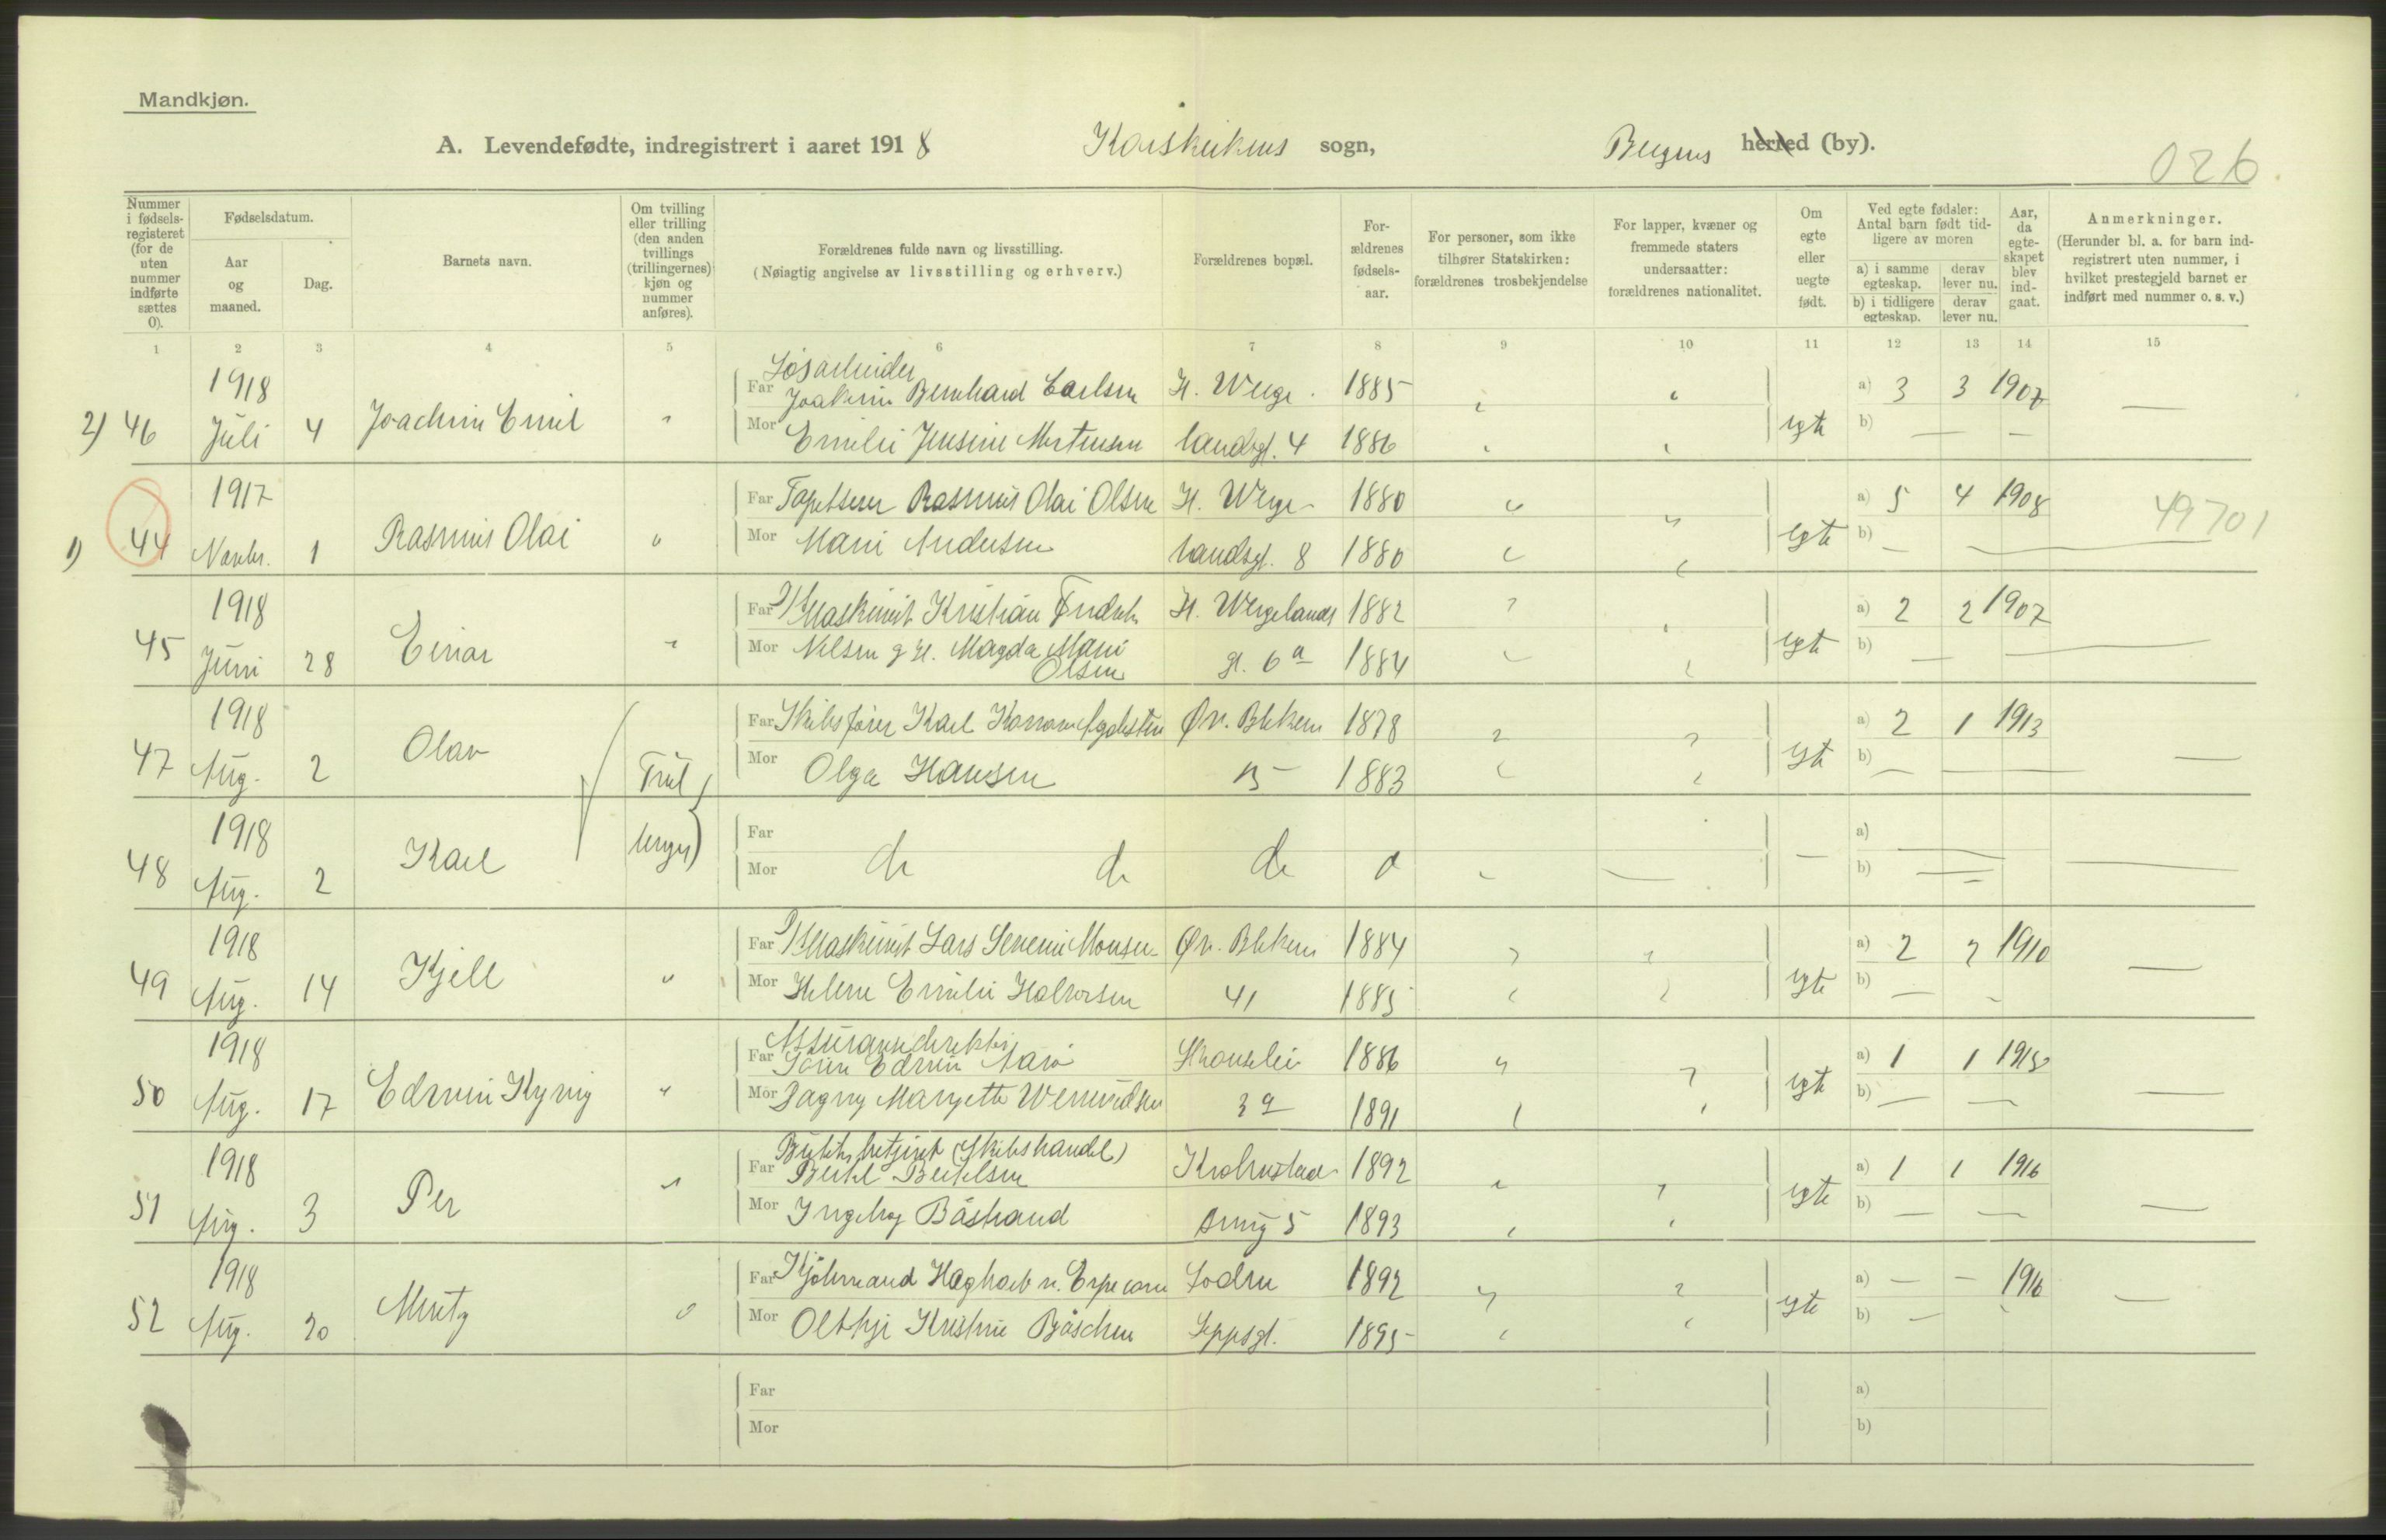 Mandkjøn.
A. Levendefødte, indregistrert i aaret 1918 Korskirkens sogn, Bergens herred (by).
026
Nummer i fødsels-registeret (for de uten nummer indførte sættes 0).
Fødselsdatum.
Aar og maaned.
Dag.
Barnets navn.
Om tvilling eller trilling (den anden tvillings (trillingernes) kjøn og nummer anføres).
Forældrenes fulde navn og livsstilling.
(Nøiagtig angivelse av livsstilling og erhverv.)
Forældrenes bopæl.
For-ældrenes fødsels-aar.
For personer, som ikke tilhører Statskirken: forældrenes trosbekjendelse
For lapper, kvæner og fremmede staters undersaatter: forældrenes nationalitet.
Om egte eller uegte født.
Ved egte fødsler: Antal barn født tid-ligere av moren
a) i samme egteskap. derav lever nu.
b) i tidligere egteskap. derav lever nu.
Aar, da egte-skapet blev ind-gaat.
Anmerkninger.
(Herunder bl. a. for barn ind-registrert uten nummer, i hvilket prestegjeld barnet er indført med nummer o. s. v.)
1 2 3 4 5 6 7 8 9 10 11 12 13 14 15
1918 Løsarbeider
Far Joakim Bernhard Carlsen H. Werge 1885 a) 3 3 1907
2) 46 Juli 4 Joachim Emil " egte
Mor Emilie Jensine Mortensen landsgt. 4 1886 b) — —
1917 Far Tapetserer Rasmus Olai Olsen H. Werge- 1880 a) 5 4 1908 49701
1) 44 Novbr. 1 Rasmus Olai " egte
Mor Marie Andersen landsgt. 8 1880 b) —
1918 Far Maskinist Kristian Fredrik H. Wergelands 1882 a) 2 2 1907
45 Juni 28 Einar " egte
Mor Nilsen g. H. Magda Marie Olsen gt. 6a 1884 b) —
1918 Far Skibsfører Karl Øv. Blekev 1878 a) 2 1 1913
47 Aug. 2 Olav Tril egte
Mor Olga Hansen 15 1883 b) —
1918 Far a)
48 Aug. 2 Karl linger do do do —
Mor b)
1918 Far Maskinist Lars Severin Monsen Øv. Blekev 1884 a) 2 2 1910
49 Aug. 14 Kjell " egte
Mor Helene Emilie Halvorsen 41 1885 b) —
1918 Assurancedirektør
Far Edvin Skanselei 1886 a) 1 1
50 Aug. 17 Edvin " egte
Mor Dagny 3a 1891 b) —
1918 (Skibshandel)
Far Bertel Bertelsen Kalvedal- 1892 a) 1 1 1916
51 Aug. 3 Per " egte
Mor Ingeborg Båstrand 5 1893 b) —
1918 Far Kjøbmand v. Erpecom Lodin 1892 a) — — 1916
52 Aug. 20 Mentz " egte
Mor Kristine Leppsgt. 1895 b) —
Far a)
Mor b)